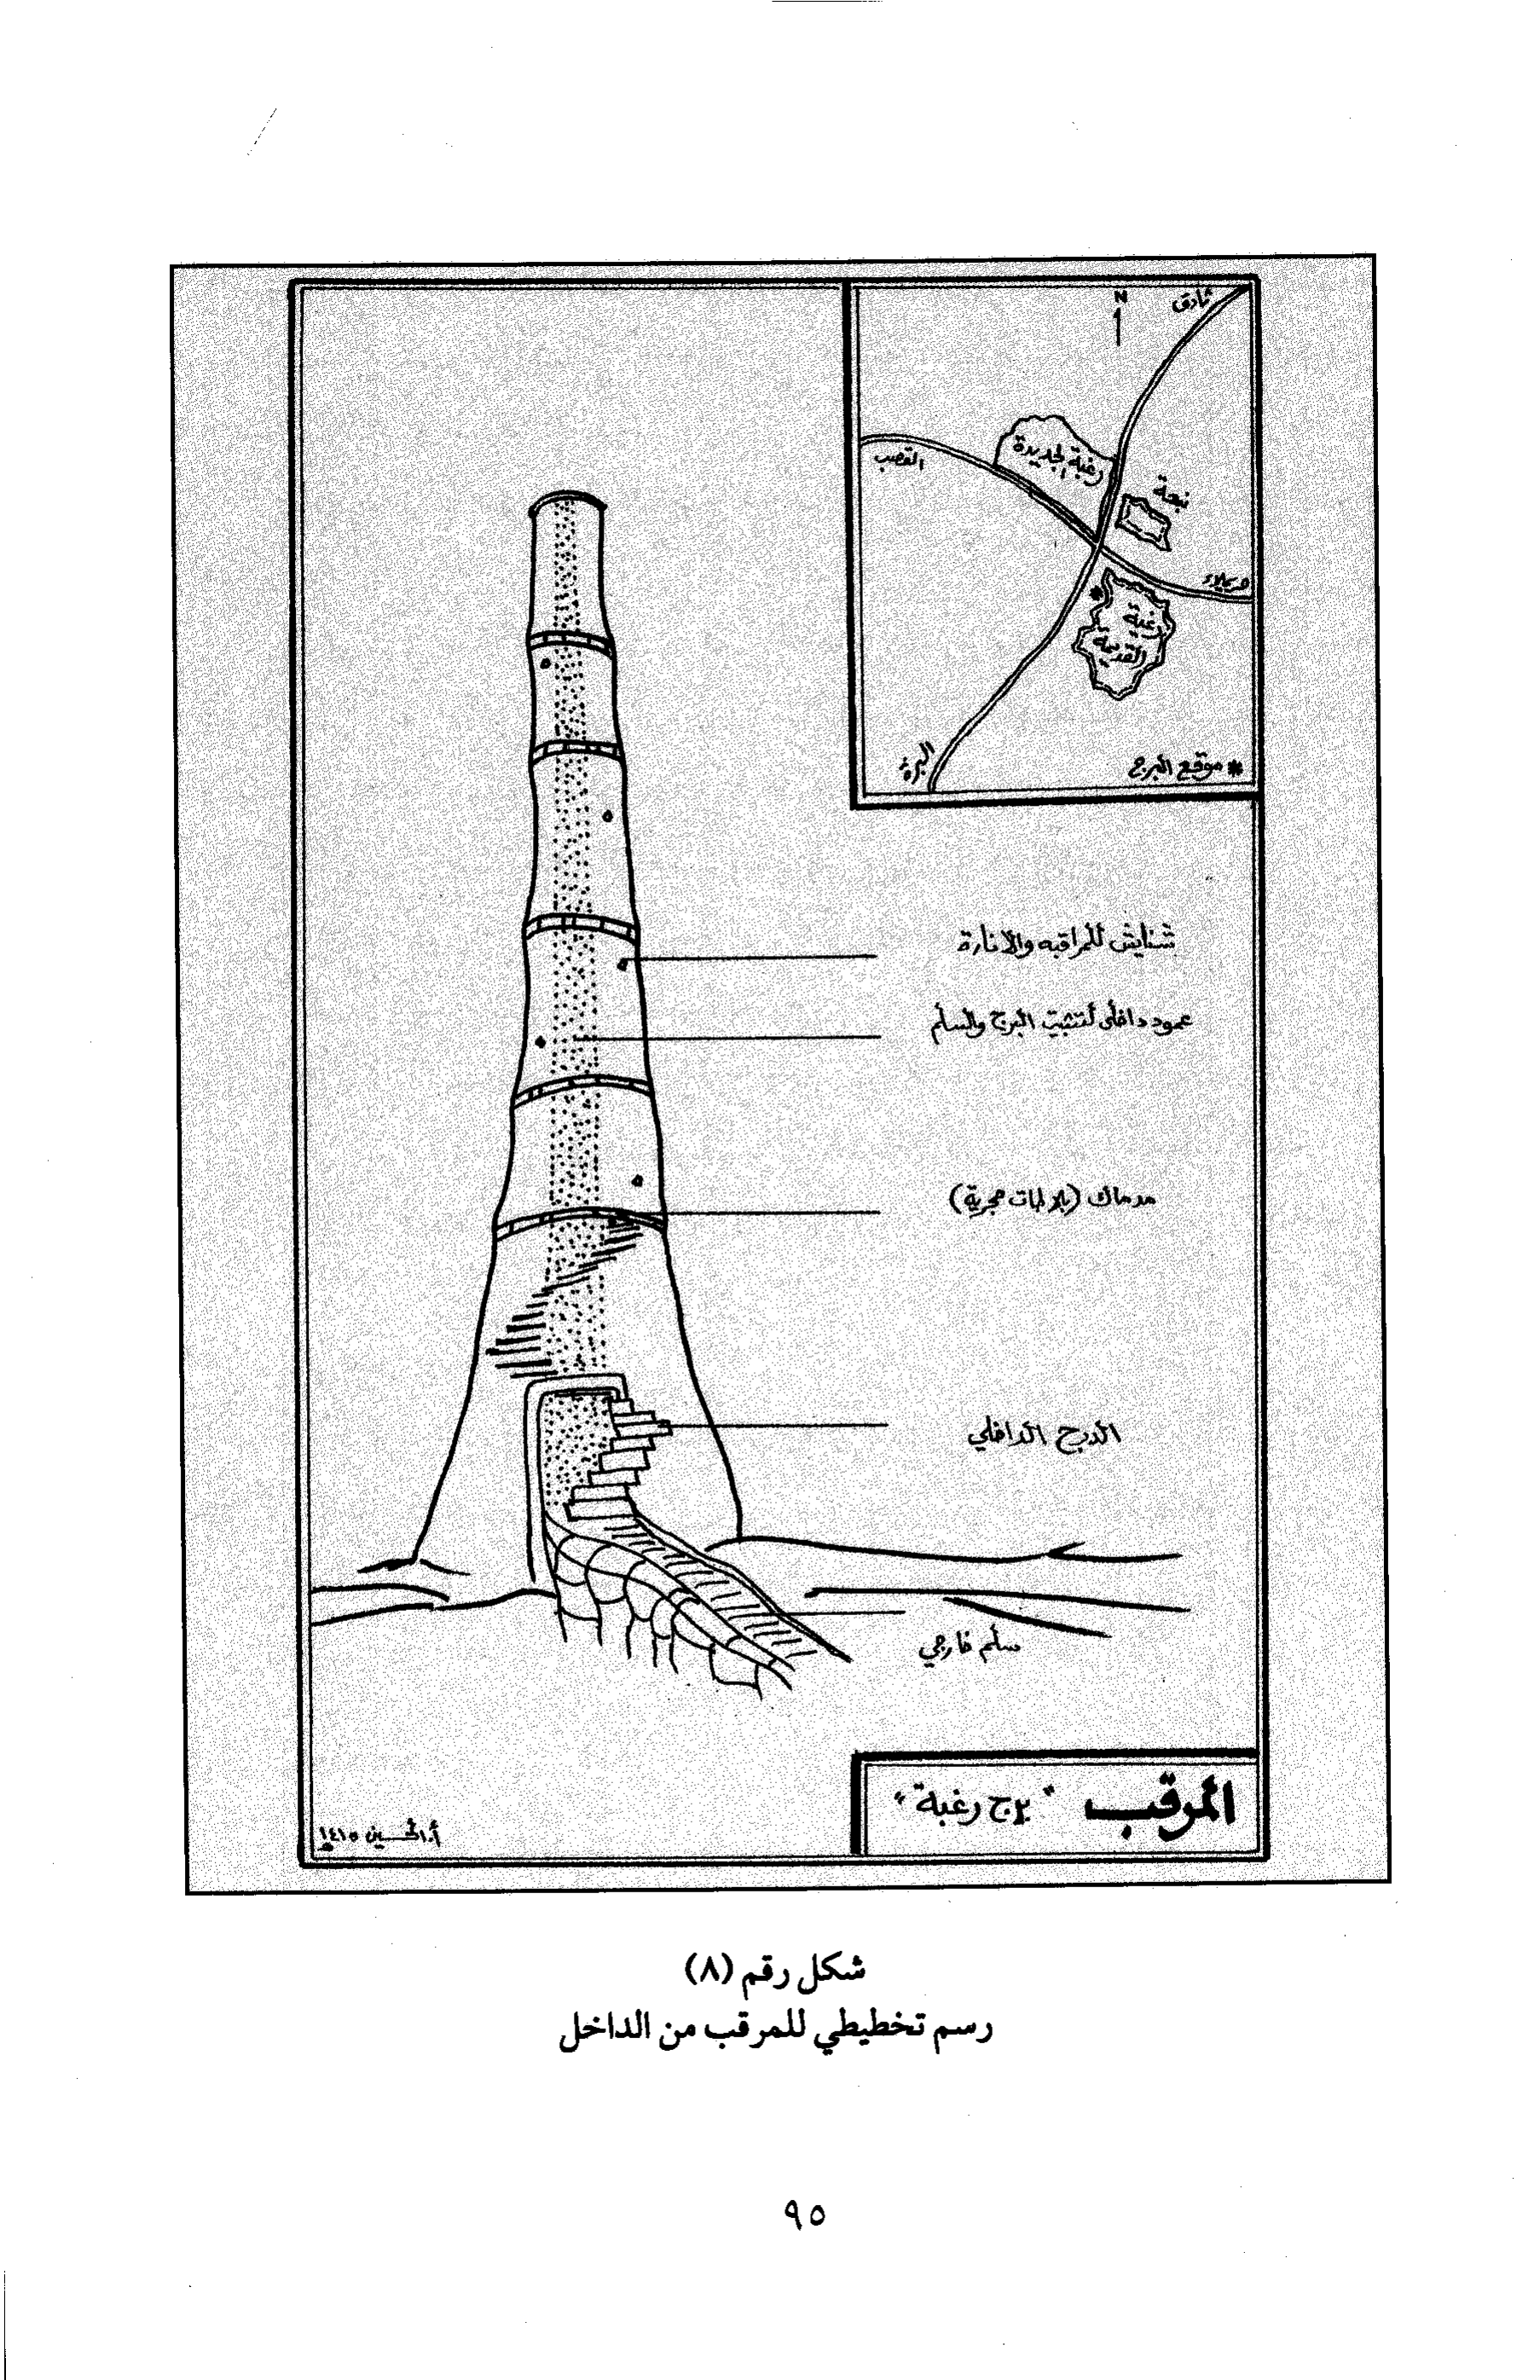 N
ثادق
رغبة الجديدة
القصب
نبعة
حريملاء
رغبة
القديمة
البرة
* موقع البرج
شنايش للمراقبه والانارة
عمود داخلي لتثبيت البرج والسلم
مدماك (بلاطات حجرية)
الدرج الداخلي
سلم خارجي
المرقب "برج رغبة"
أ. الحسين ١٤١٥هـ
شكل رقم (٨)
رسم تخطيطي للمرقب من الداخل
٩٥